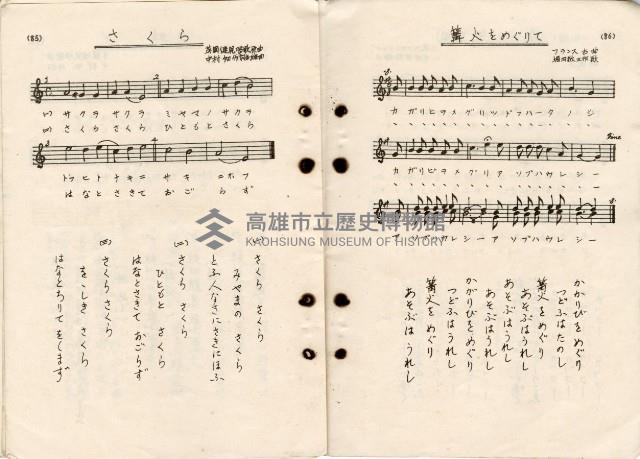 (85)
さくら
(一) サクラ サクラ ミヤマノ サクラ
(二) さくら さくら ひともと さくら
トフヒトナキニ サキ ニホフ
はなとさきて おごらず
(一) さくら さくら
みやまの さくら
とふ人なきにさきにほふ
(二) さくら さくら
ひともと さくら
はなとさきて おごらず
(三) さくら さくら
をゝしき さくら
はなとちりて をしまず
(86)
篝火をめぐりて
フランス古曲
カガリヒヲメグリツドフハータノシ
Fine
カガリビヲメグリアソブハウレシー
アソブハウレシーアソブハウレシー
かがりびをめぐり
つどふはたのし
篝火をめぐり
あそぶはうれし
あそぶはうれし
かがりびをめぐり
つどふはうれし
篝火をめぐり
あそぶはうれし
高雄市立歷史博物館
KAOHSIUNG MUSEUM OF HISTORY